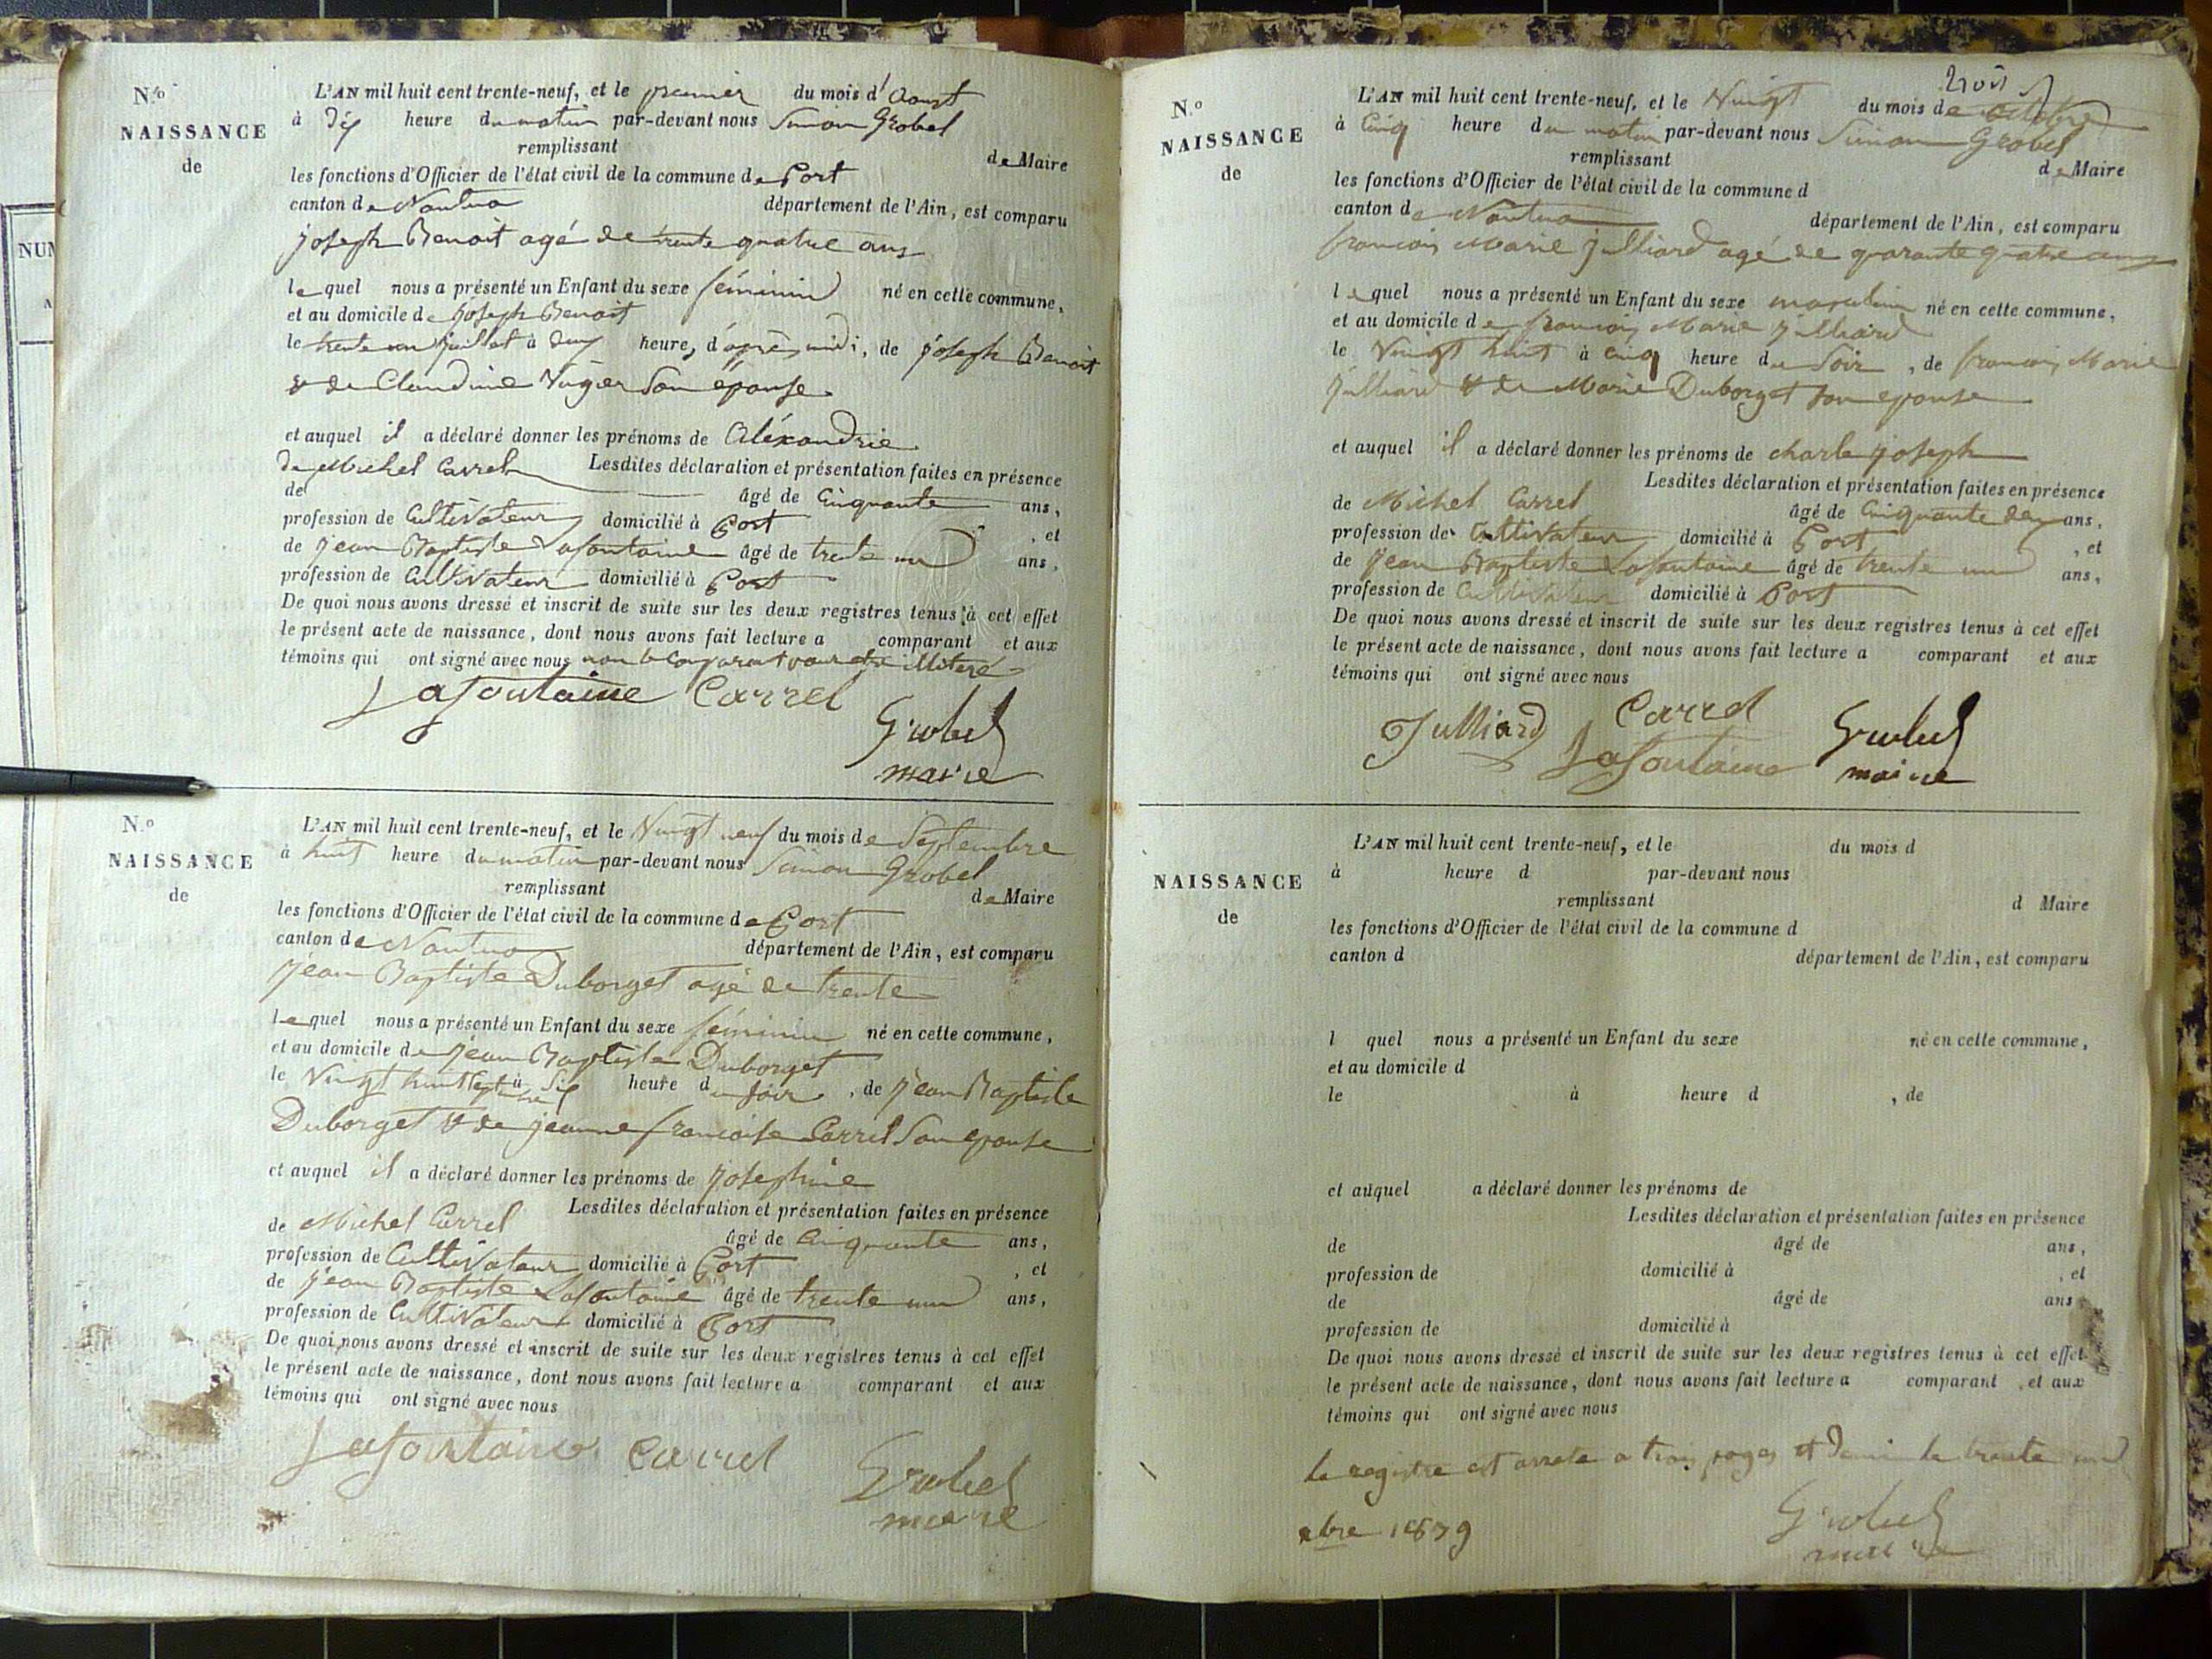 N.º
NAISSANCE
de
L'AN mil huit cent trente-neuf, et le premier du mois d'Aoust
à dix heure du matin par-devant nous Simon Grobel
remplissant
de Maire
les fonctions d'Officier de l'état civil de la commune de Port
canton de Nantua département de l'Ain, est comparu
joseph Benoit agé de trente quatre ans
lequel nous a présenté un Enfant du sexe féminin né en cette commune,
et au domicile de joseph Benoit
le trente un juillet à deux heure, d'après midi, de joseph Benoit
& de Claudine Vugier Son épouse
et auquel il a déclaré donner les prénoms de Aléxandrie
de Michel Carrel Lesdites déclaration et présentation faites en présence
de âgé de Cinquante ans,
profession de Cultivateur domicilié à Port , et
de jean Baptiste Lafontaine âgé de trente un ans,
profession de Cultivateur domicilié à Port
De quoi nous avons dressé et inscrit de suite sur les deux registres tenus à cet effet
le présent acte de naissance, dont nous avons fait lecture a comparant et aux
témoins qui ont signé avec nous non le comparant pour etre illiteré
Lafontaine Carrel
Grobel
maire
N.º
NAISSANCE
de
L'AN mil huit cent trente-neuf, et le Vingt neuf du mois de Septembre
à huit heure du matin par-devant nous Simon Grobel
remplissant
de Maire
les fonctions d'Officier de l'état civil de la commune de Port
canton de Nantua département de l'Ain, est comparu
jean Baptiste Duborget agé de trente
lequel nous a présenté un Enfant du sexe féminin né en cette commune,
et au domicile de jean Baptiste Duborget
le Vingt huit à Six heure du Soir, de jean Baptiste
Duborget & de jeanne francoise Carrel Son epouse
et auquel il a déclaré donner les prénoms de josephine
Lesdites déclaration et présentation faites en présence
de Michel Carrel âgé de Cinquante ans,
profession de Cultivateur domicilié à Port , et
de jean Baptiste Lafontaine âgé de trente un ans,
profession de Cultivateur domicilié à Port
De quoi nous avons dressé et inscrit de suite sur les deux registres tenus à cet effet
le présent acte de naissance, dont nous avons fait lecture a comparant et aux
témoins qui ont signé avec nous
Lafontaine Carrel
Grobel
maire
N.º
NAISSANCE
de
L'AN mil huit cent trente-neuf, et le Vingt du mois de octobre
à Cinq heure du matin par-devant nous Simon Grobel
remplissant
de Maire
les fonctions d'Officier de l'état civil de la commune d
canton de Nantua département de l'Ain, est comparu
francois Marie julliard agé de quarante quatre ans
lequel nous a présenté un Enfant du sexe masculin né en cette commune,
et au domicile de francois Marie julliard
le Vingt huit à cinq heure du Soir, de francois Marie
julliard & de Marie Duborget Son epouse
et auquel il a déclaré donner les prénoms de charle joseph
Lesdites déclaration et présentation faites en présence
de Michel Carrel âgé de Cinquante deux ans,
profession de Cultivateur domicilié à Port , et
de jean Baptiste Lafontaine âgé de trente un ans,
profession de Cultivateur domicilié à Port
De quoi nous avons dressé et inscrit de suite sur les deux registres tenus à cet effet
le présent acte de naissance, dont nous avons fait lecture a comparant et aux
témoins qui ont signé avec nous
Julliard Carrel Grobel
Lafontaine maire
NAISSANCE
de
L'AN mil huit cent trente-neuf, et le du mois d
à heure d par-devant nous
remplissant
d Maire
les fonctions d'Officier de l'état civil de la commune d
canton d département de l'Ain, est comparu
l quel nous a présenté un Enfant du sexe né en cette commune,
et au domicile d
le à heure d , de
et auquel a déclaré donner les prénoms de
Lesdites déclaration et présentation faites en présence
de âgé de ans,
profession de domicilié à , et
de âgé de ans
profession de domicilié à
De quoi nous avons dressé et inscrit de suite sur les deux registres tenus à cet effet
le présent acte de naissance, dont nous avons fait lecture a comparant et aux
témoins qui ont signé avec nous
le registre est arrete a trois pages et demi le trente un
xbre 1839
Grobel
maire